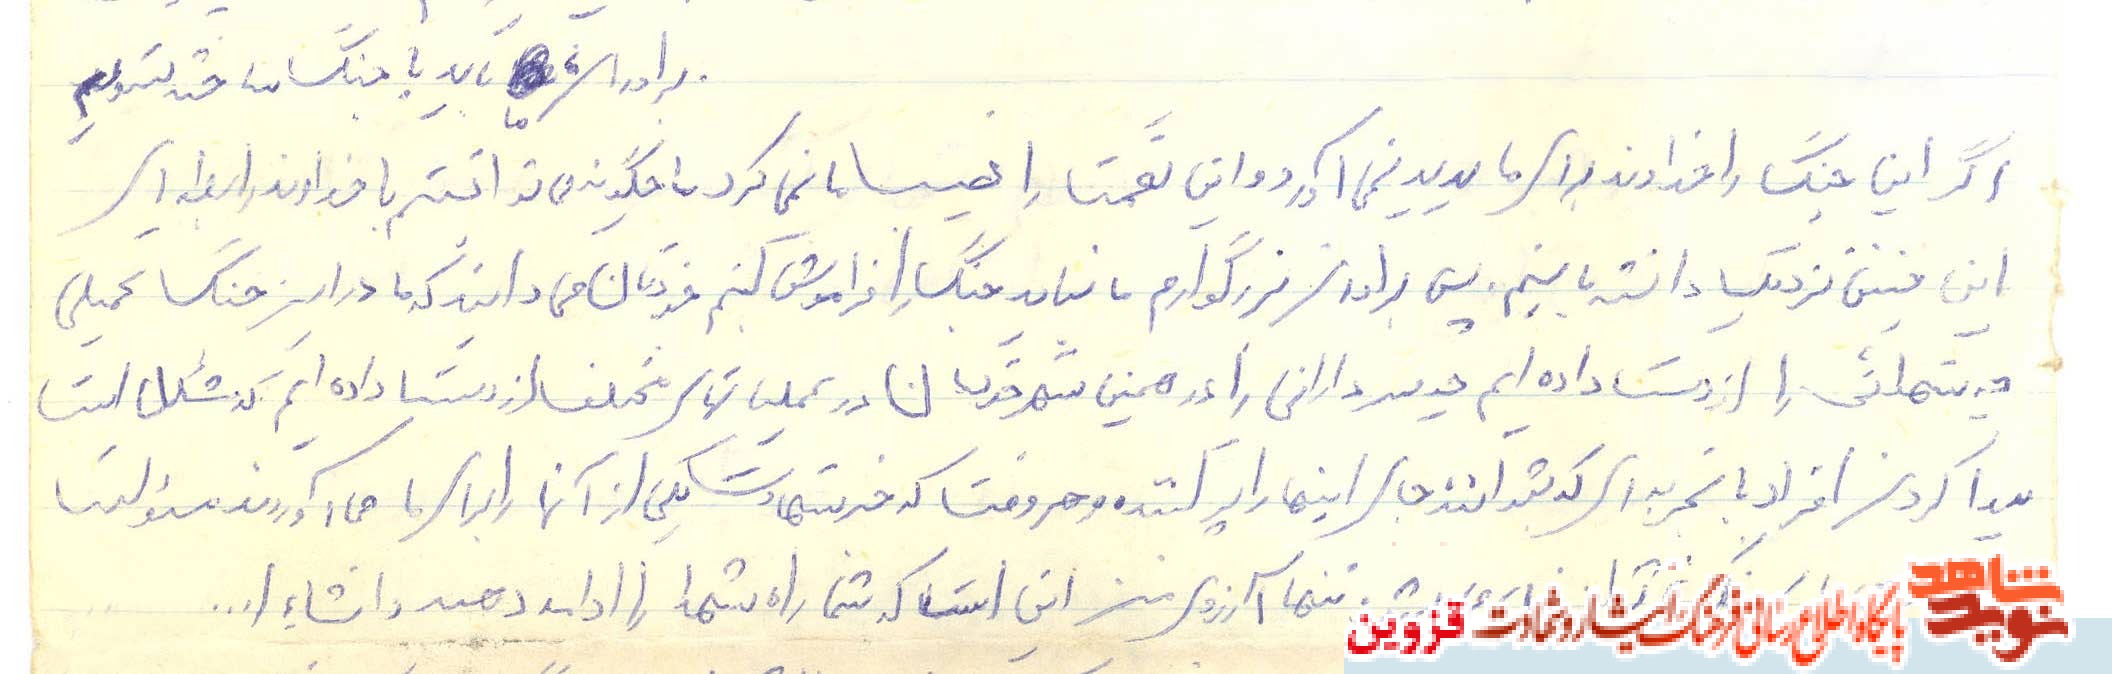 برادران ما باید با جنگ ساخته شویم
اگر این جنگ را خداوند برای ما پدید نمی آورد و این نعمت را نصیب ما نمی کرد ما چگونه می توانستیم با خداوند رابطه ای
این چنین نزدیک داشته باشیم. پس برادران بزرگوارم ما نباید جنگ را فراموش کنیم خودتان می دانید که ما در این جنگ تحمیلی
چه شهدائی را از دست داده ایم چه سردارانی را در همین شهر خودمان در عملیاتهای مختلف از دست داده ایم که مشکل است
پیدا کردن افراد با تجربه ای که بتوانند جای اینها را پر کنند و هر وقت که خبر شهادت یکی از آنها را برای ما می آوردند مسئولیت
تنها آرزوی من این است که شما راه شهدا را ادامه دهید و انشاء ا...
نوید شاهد
پایگاه اطلاع رسانی فرهنگ ایثار و شهادت قزوین